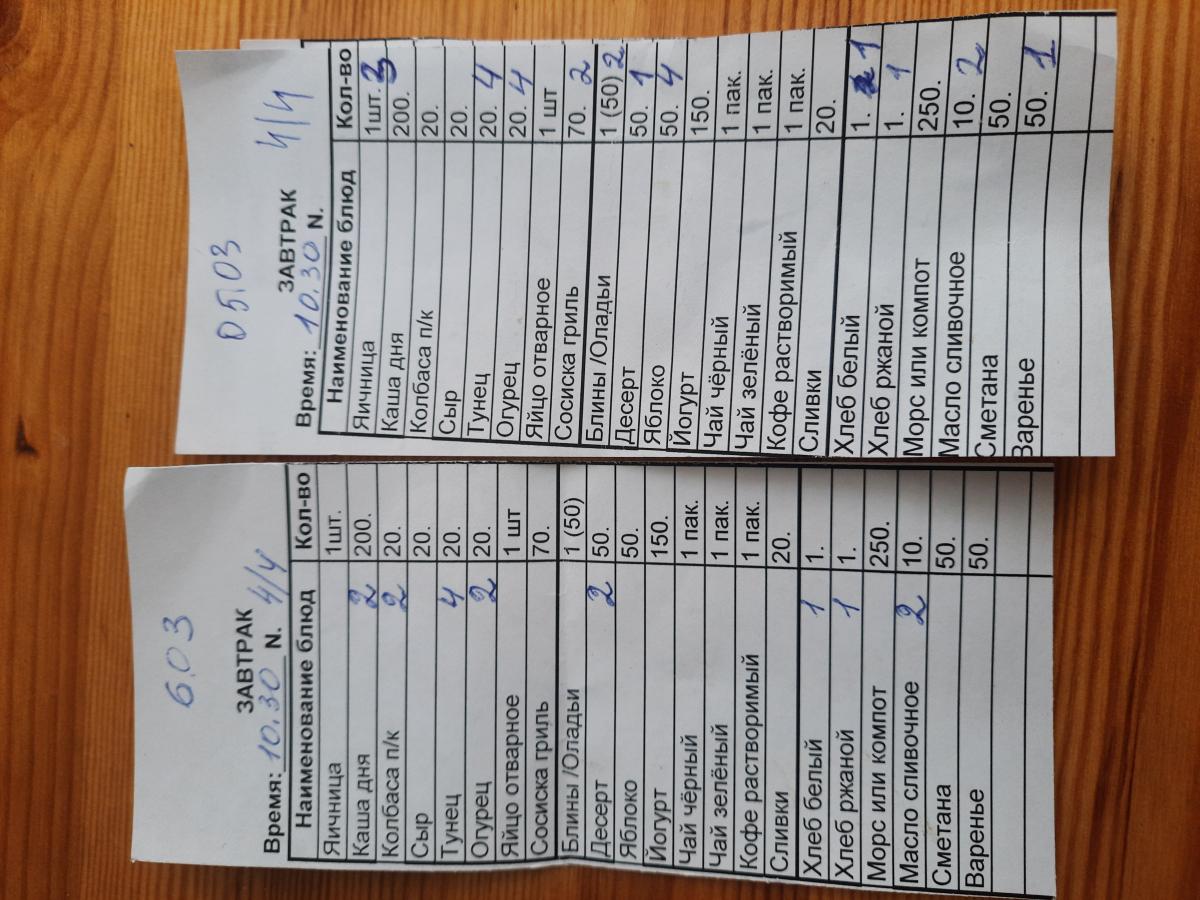 6.03
ЗАВТРАК
Время: 10.30 N. 4/4
Наименование блюд Кол-во
Яичница 1шт.
Каша дня 2 200.
Колбаса п/к 2 20.
Сыр 20.
Тунец 4 20.
Огурец 2 20.
Яйцо отварное 1 шт
Сосиска гриль 70.
Блины /Оладьи 1 (50)
Десерт 2 50.
Яблоко 50.
Йогурт 150.
Чай чёрный 1 пак.
Чай зелёный 1 пак.
Кофе растворимый 1 пак.
Сливки 20.
Хлеб белый 1 1.
Хлеб ржаной 1 1.
Морс или компот 250.
Масло сливочное 2 10.
Сметана 50.
Варенье 50.
05.03
ЗАВТРАК 4/4
Время: 10.30 N.
Наименование блюд Кол-во
Яичница 1шт. 3
Каша дня 200.
Колбаса п/к 20.
Сыр 20.
Тунец 20. 4
Огурец 20. 4
Яйцо отварное 1 шт
Сосиска гриль 70. 2
Блины /Оладьи 1 (50) 2
Десерт 50. 1
Яблоко 50. 4
Йогурт 150.
Чай чёрный 1 пак.
Чай зелёный 1 пак.
Кофе растворимый 1 пак.
Сливки 20.
Хлеб белый 1. 1
Хлеб ржаной 1. 1
Морс или компот 250.
Масло сливочное 10. 2
Сметана 50.
Варенье 50. 1